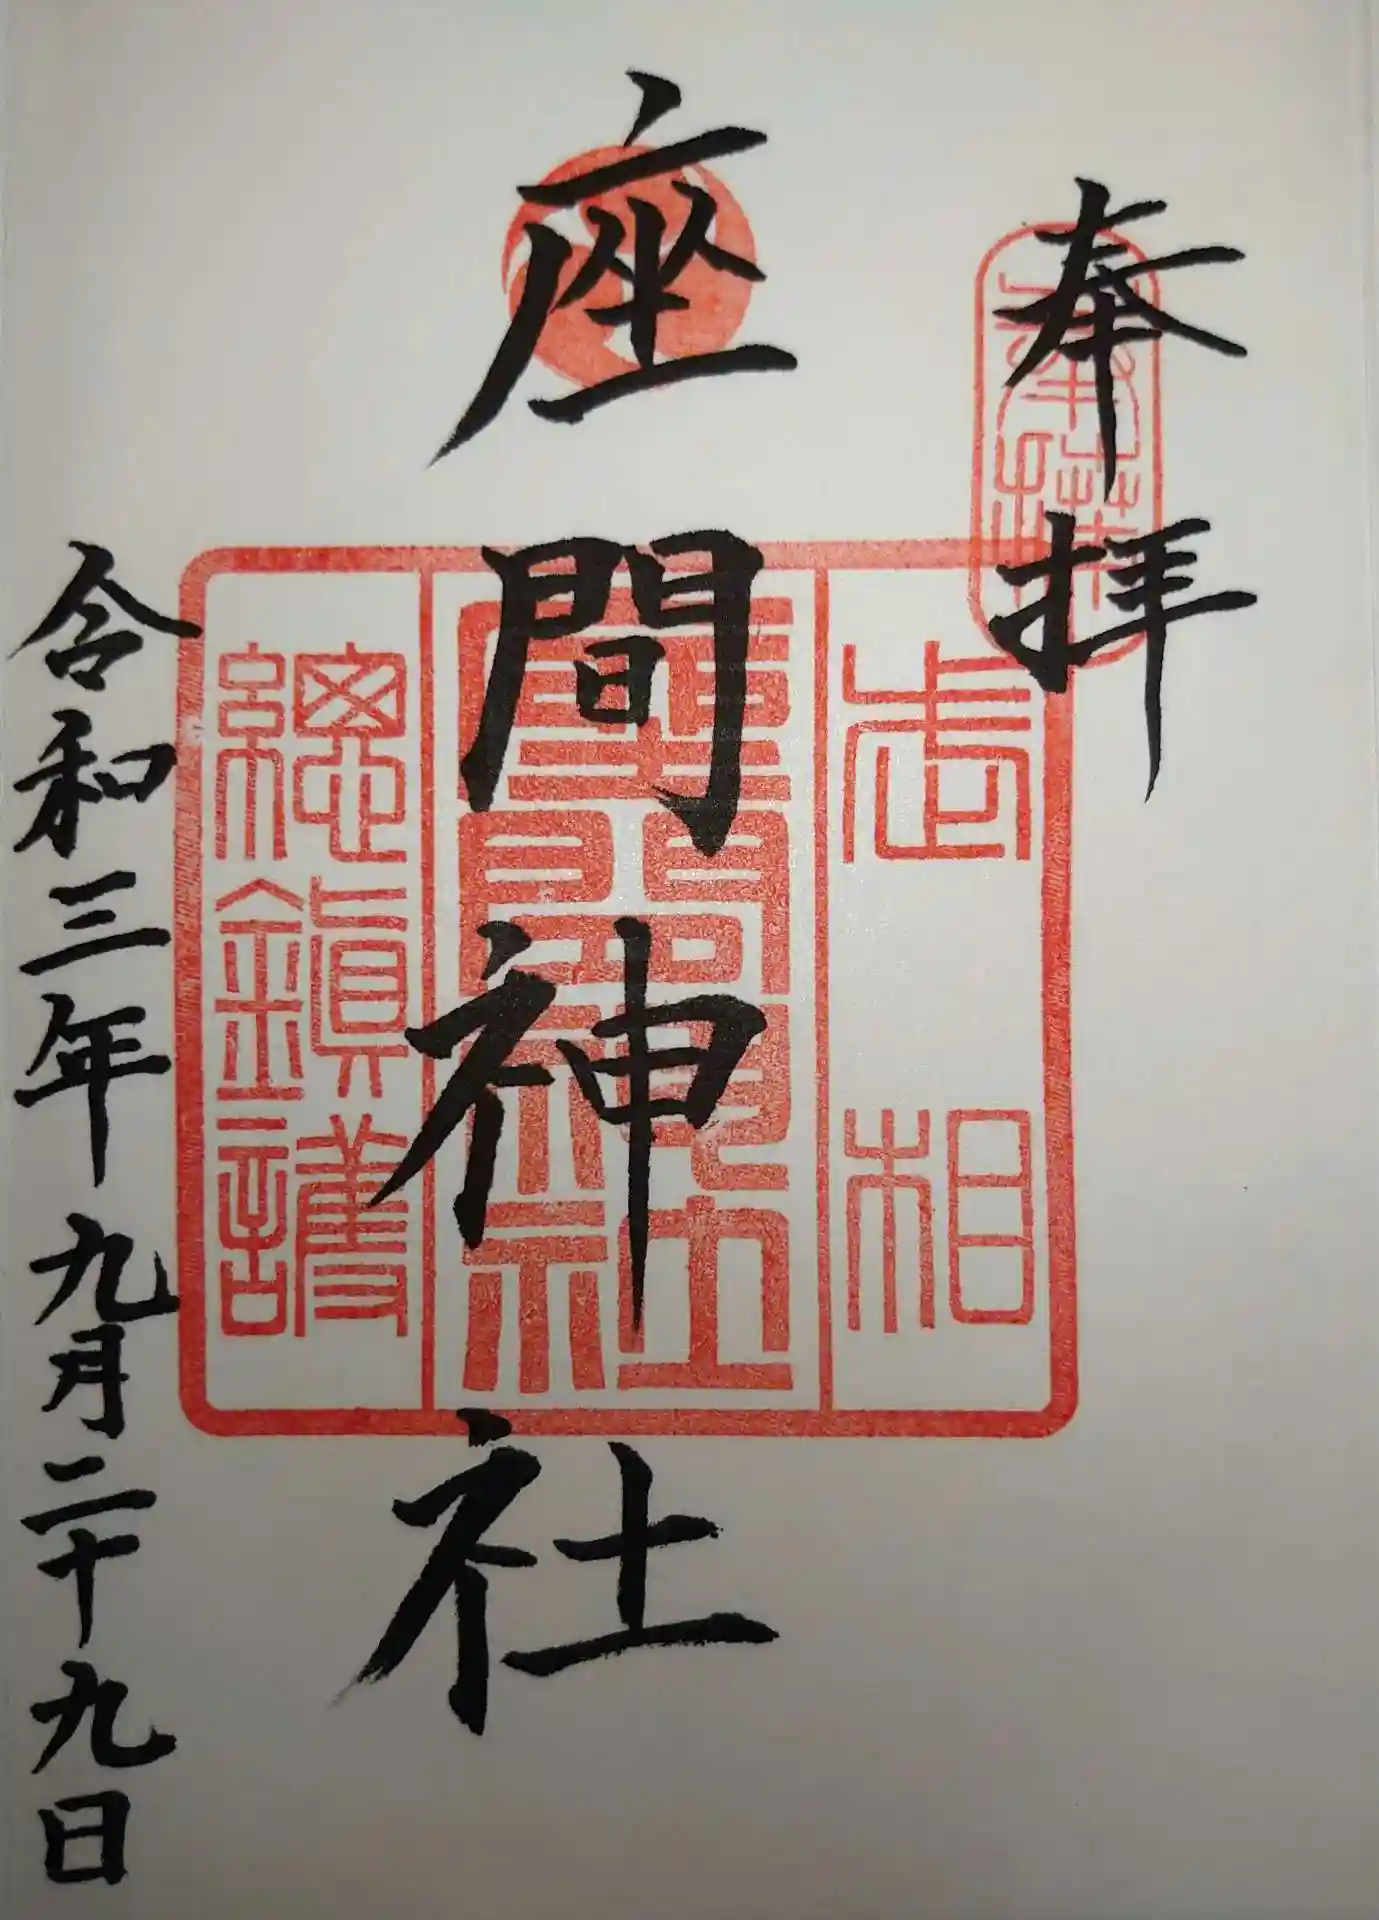 奉拝
奉拝
相武
座間神社
座間神社
總鎮護
令和三年九月二十九日